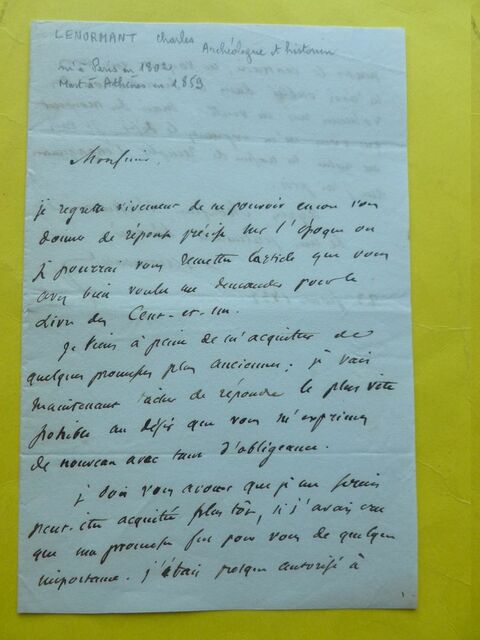 LENORMANT Charles
Archéologue et historien
né à Paris en 1802
Mort à Athènes en 1859
Monsieur,
je regrette vivement de ne pouvoir encore vous
donner de réponse précise sur l'époque où
je pourrai vous remettre l'article que vous
avez bien voulu me demander pour le
Livre des Cent-et-un.
Je viens à peine de m'acquitter de
quelques promesses plus anciennes; je vais
maintenant tâcher de répondre le plus vite
possible au désir que vous m'exprimez
de nouveau avec tant d'obligeance.
je dois vous avouer que je me serais
peut-être acquitté plus tôt, si j'avais cru
que ma promesse fut pour vous de quelque
importance. j'étais presque autorisé à